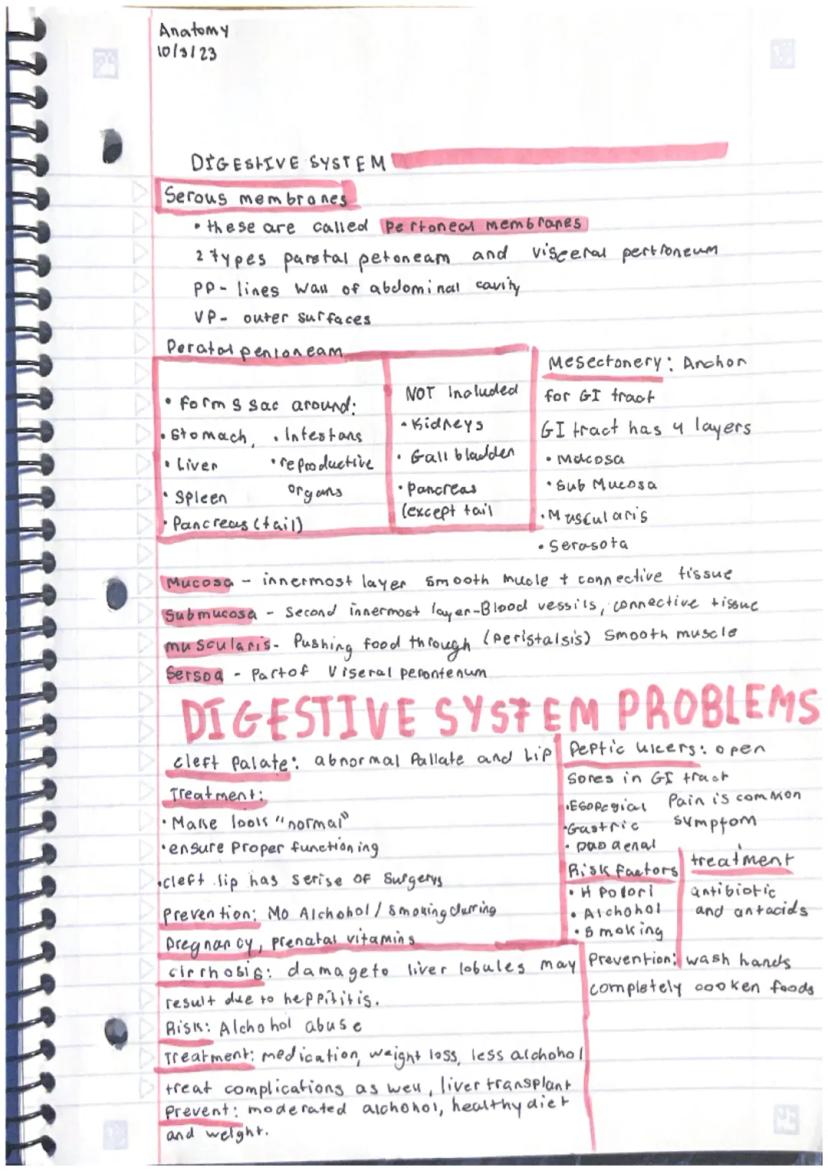 Anatomy
10/3/23
DIGESTIVE SYSTEM
Serous membranes
• these are called Pertoneal membranes
2 types paratal petoneam and visceral pertroneum
PP- lines wall of abdominal cavity
VP- outer surfaces
Peratal pentoneam
• forms sac around:
• Stomach, • Intestans
• Liver • reproductive
• Spleen organs
• Pancreas (tail)
NOT Included
• Kidneys
• Gall bladder
• Pancreas
(except tail
Mesectonery: Anchor
for GI tract
GI tract has 4 layers
• Macosa
• Sub Mucosa
• Muscularis
• Serasota
Mucosa - innermost layer smooth mucle + connective tissue
Submucosa - Second innermost layer-Blood vessils, connective tissue
muscularis- Pushing food through (peristalsis) Smooth muscle
Sersoa - Part of Viseral perontenum
DIGESTIVE SYSTEM PROBLEMS
Cleft Palate: abnormal Pallate and Lip
Treatment:
• Make look "normal"
• ensure Proper functioning
• cleft lip has serise of Surgerys
Prevention: No Alchohol/Smoking durring
pregnancy, prenatal vitamins
Peptic Ulcers: open
Sores in GI tract
• Esopegial Pain is common
• Gastric symptom
• Duodenal
Risk Factors
• H Polori
• Alchohol
• Smoking
treatment
antibiotic
and antacids
Prevention: wash hands
completely cooken foods
Cirrhosis: damage to liver lobules may
result due to heppititis.
Risk: Alchohol abuse
Treatment: medication, weight loss, less alchohol
treat complications as well, liver transplant
Prevent: moderated alchohol, healthy diet
and weight.